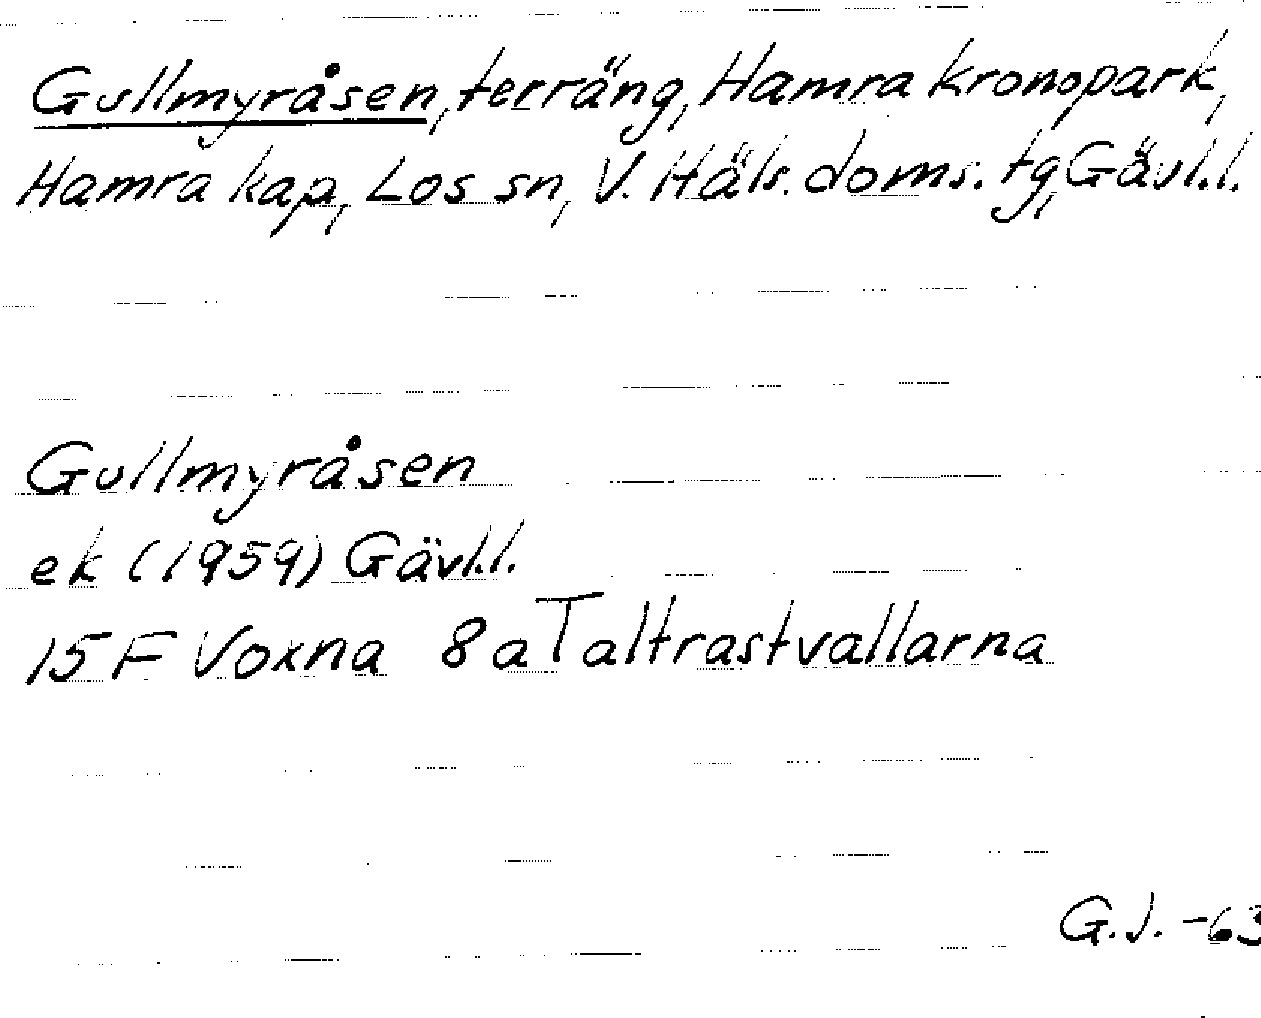 Gullmyråsen, terräng, Hamra kronopark,
Hamra kap, Los sn, V. Häls. doms. tg, Gävl.l.
Gullmyråsen
ek (1959) Gävl.l.
15 F Voxna 8 a Taltrastvallarna
G.J. -63